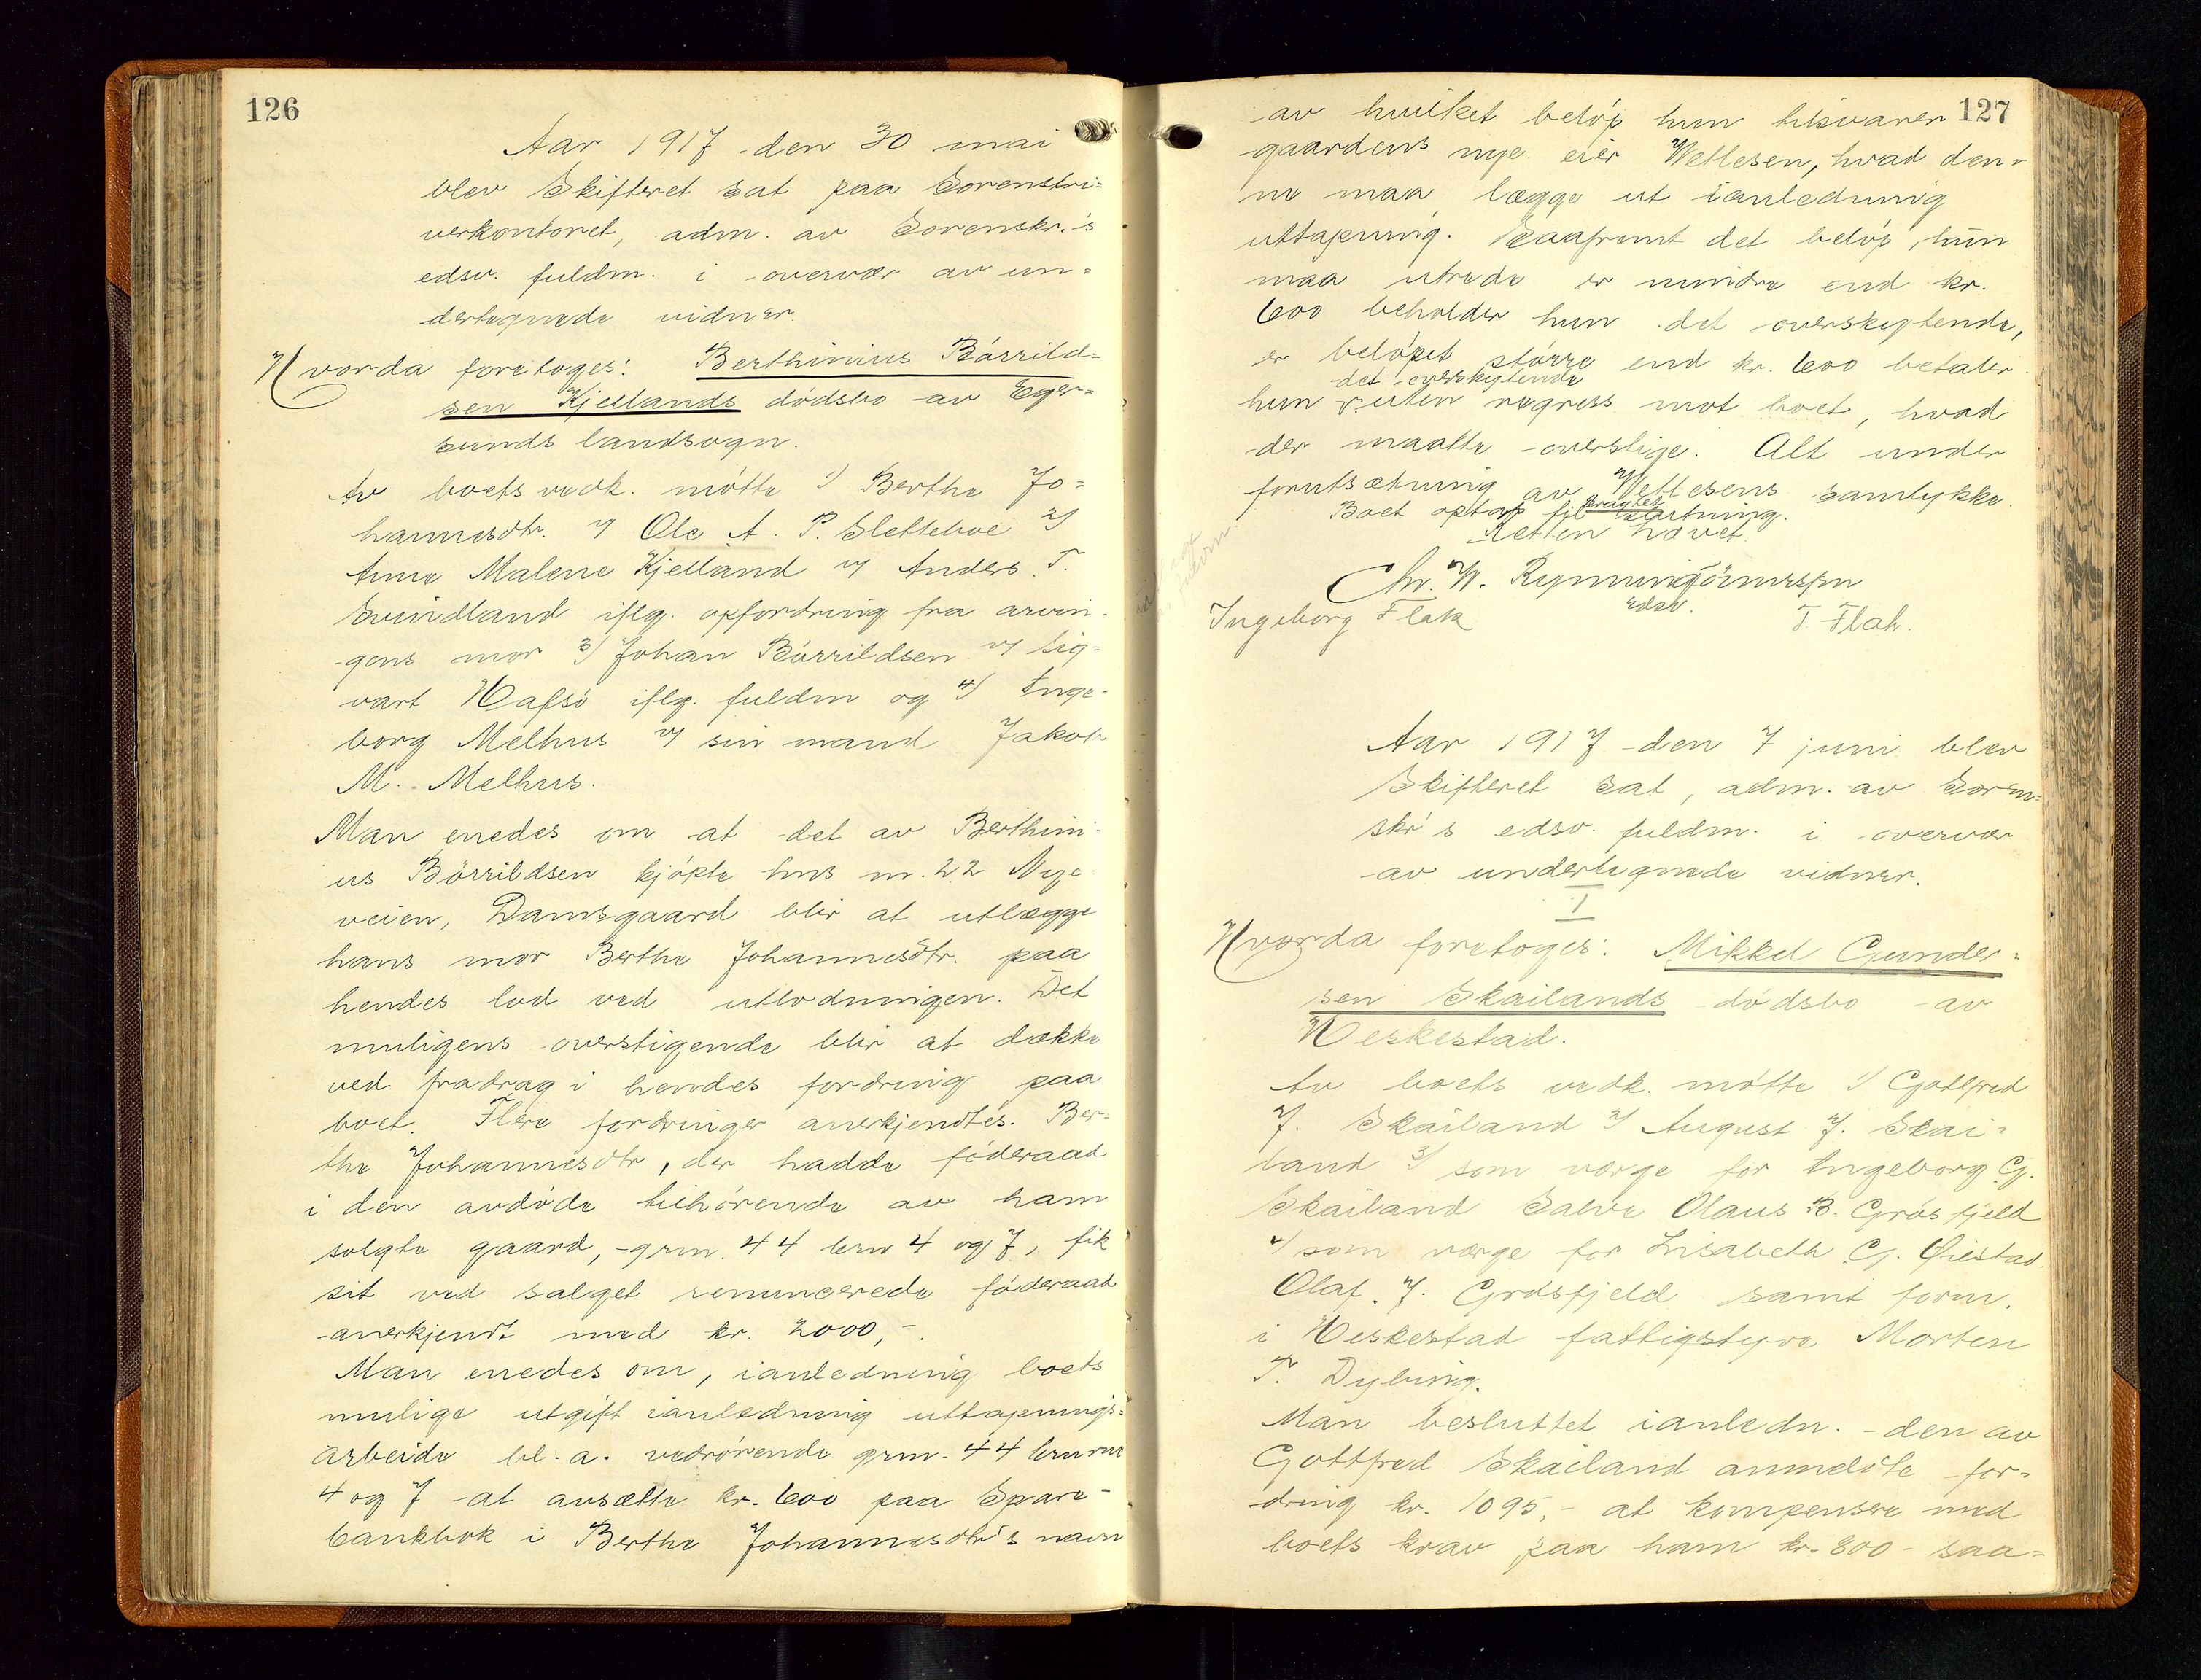 126
Aar 1917 den 30 mai
blev Skifteret sat paa Sorenskri=
verkontoret, adm. av Sorenskr.'s
edsv. fuldm. i overvær av un=
dertegnede vidner.
Hvorda foretoges: Berthinius Börrild=
sen Kjellands dödsbo av Eger=
sunds landsogn.
Av boets vedk. mötte 1) Berthe Jo=
hannesdtr. v/ Ole A. P. Slettebøe 2)
Anna Malene Kjelland v/ Anders T.
Svindland iflg. opfordring fra arvin-
gens mor 3) Johan Börrildsen v/ Sig=
vart Hafsö iflg. fuldm og 4) Inge-
borg Melhus v/ sin mand Jakob
M. Melhus.
Man enedes om at det av Berthini-
us Börrildsen kjöpte hus nr. 22 Nye-
veien, Damsgaard blir at utlægge
hans mor Berthe Johannesdtr. paa
hendes lod ved utlodningen. Det
muligens overstigende blir at dække
ved fradrag i hendes fordring paa
boet. Flere fordringer anerkjendtes. Ber=
the Johannesdtr, der hadde föderaad
i den avdöde tilhörende av ham
solgte gaard, grn. 44 brn 4 og 7, fik
sit ved salget renuncerede föderaad
anerkjendt med kr. 2000,-.
Man enedes om, ianledning boets
mulige utgift ianledning uttapnings=
arbeide bl. a. vedrörende grn. 44 brn
4 og 7 at ansætte kr. 600 paa Spare-
bankbok i Berthe Johannesdtr's navn
127
av hvilket belöp hun tilsvarer
gaardens nye eier Wetlesen, hvad den=
ne maa lægge ut ianledning
uttapning. Saafremt det belöp, hun
maa utrede er mindre end kr.
600 beholder hun det overskytende,
er belöpet större end kr. 600 betaler
det overskytende
hun uten regress mot boet, hvad
der maatte overstige. Alt under
forutsætning av Wetlesens samtykke.
Boet optap til slutning.
Retten hævet.
Chr. W. Rynning Tönnesen
edsv.
Ingeborg Flak T. Flak.
Aar 1917 den 7 juni blev
Skifteret sat, adm. av Soren=
skr's edsv. fuldm. i overvær
av undertegnede vidner.
I
Hvorda foretoges: Mikkel Gunder=
sen Skailands dödsbo av
Heskestad.
Av boets vedk. mötte 1) Gottfred
J. Skailand 2) August J. Skai=
land 3) som værge for Ingeborg G.
Skailand Salve Olaus B. Grösfjeld
4) som værge for Lisabeth G. Öiestad
Olaf J. Grösfjeld samt form.
i Heskestad fattigstyre Morten
T. Dybing.
Man besluttet ianledn. den av
Gottfred Skailand anmeldte for=
dring kr. 1095,- at kompensere med
boets krav paa ham kr. 800- saa=